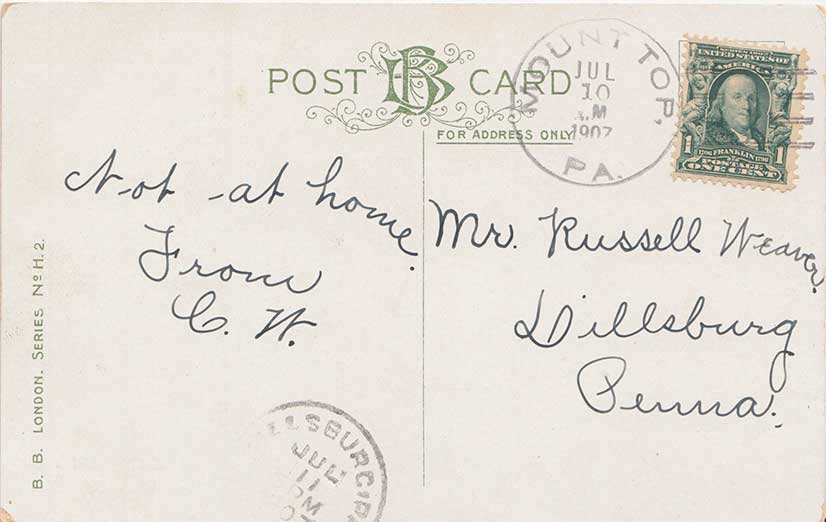 POST CARD
BB
FOR ADDRESS ONLY
MOUNT TOP, PA.
JUL
10
A.M
1907
SERIES 1902
UNITED STATES OF
AMERICA
1706 FRANKLIN 1790
1 POSTAGE 1
ONE CENT
Not at home.
From
C. W.
Mr. Russell Weaver.
Dillsburg
Penna.
B. B. LONDON. SERIES No H. 2.
LLSBURG, PA
JUL
11
PM